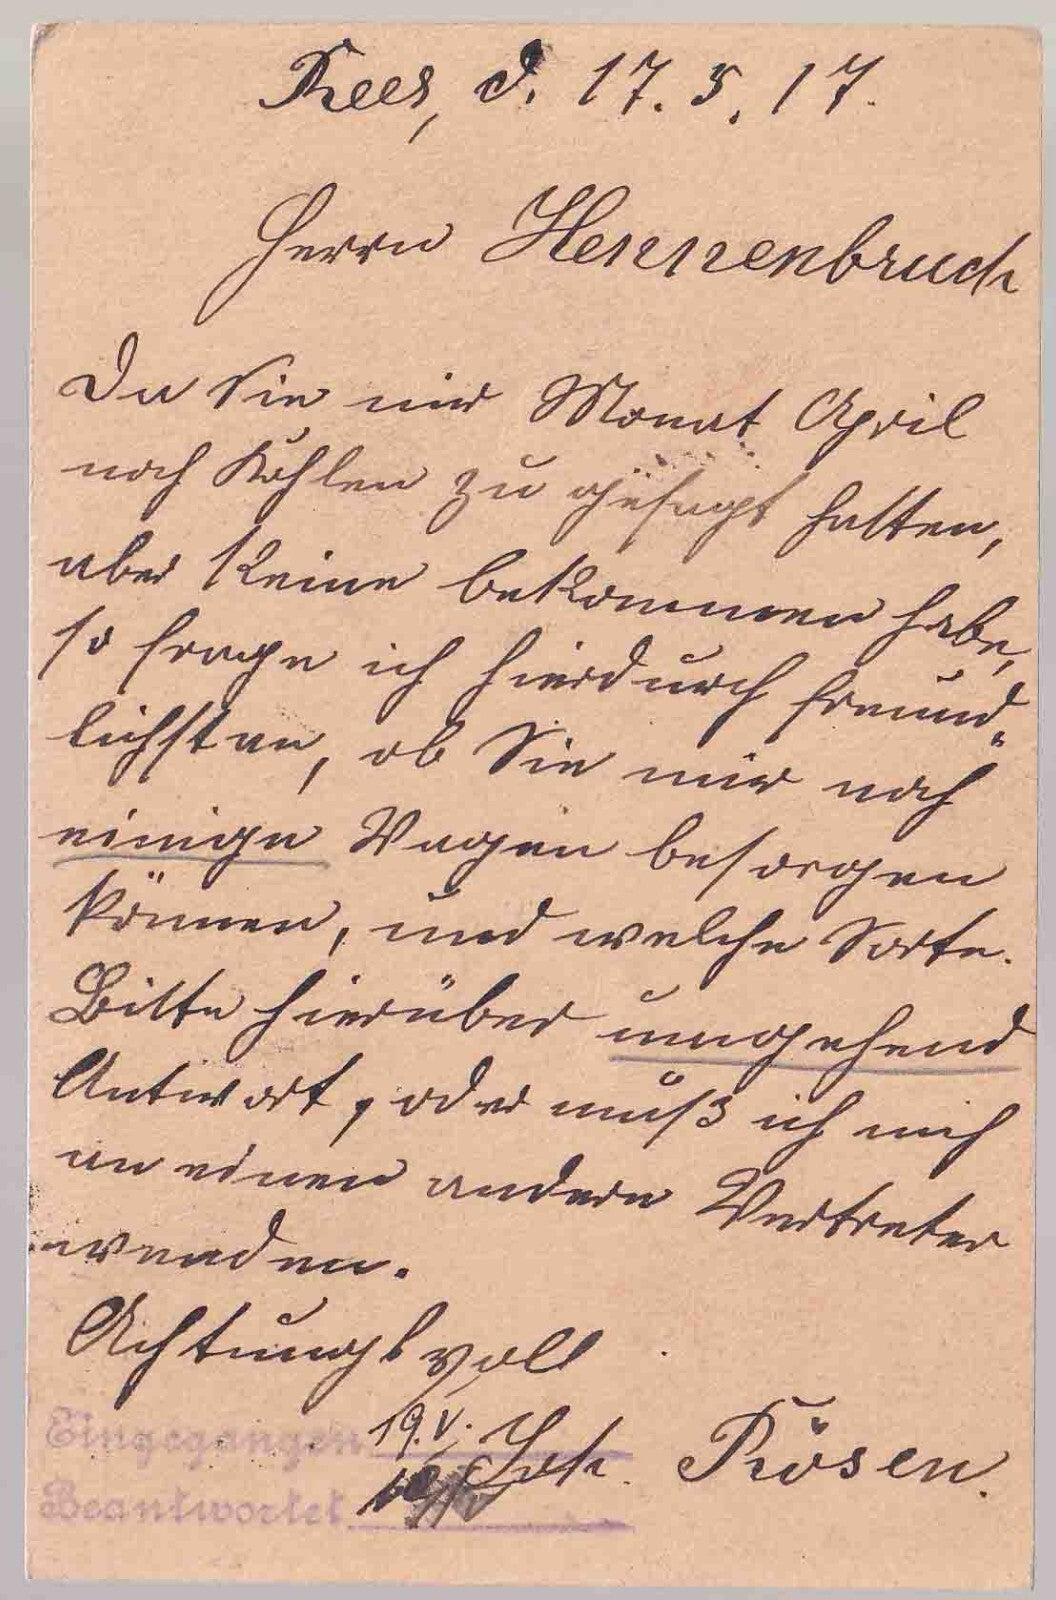 Rees, d. 17.5.17.
Herrn Hennenbruch
Da Sie mir Monat April
noch Kohlen zu gesagt hatten,
aber keine bekommen habe,
so frage ich hierdurch freund„
lichst an, ob Sie mir noch
einige Wagen besorgen
können, und welche Sorte.
Bitte hierüber umgehend
Antwort, oder muß ich mich
an einen andern Vertreter
wenden.
Achtungsvoll
Joh. Rösen.
Eingegangen 19.V.
Beantwortet